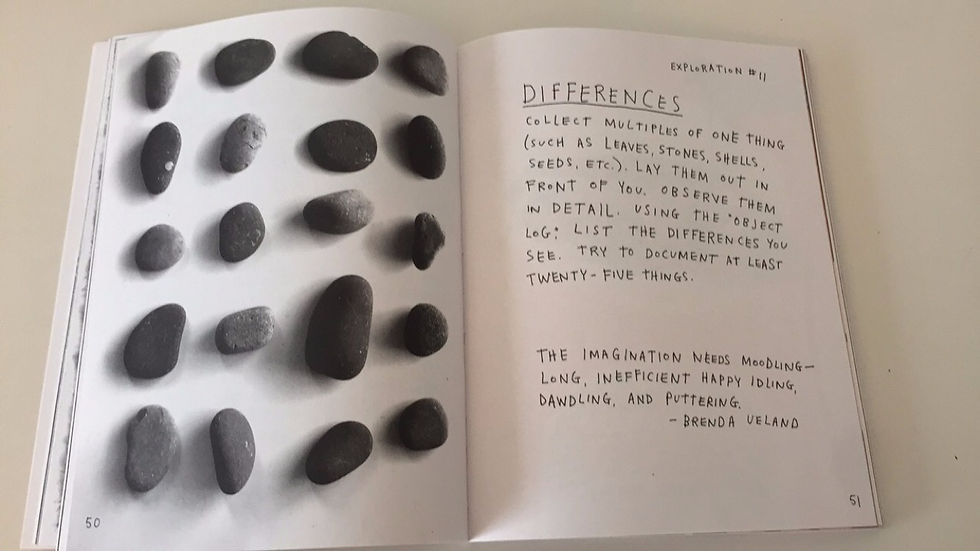 50
EXPLORATION #11
DIFFERENCES
COLLECT MULTIPLES OF ONE THING
(SUCH AS LEAVES, STONES, SHELLS,
SEEDS, ETC.). LAY THEM OUT IN
FRONT OF YOU. OBSERVE THEM
IN DETAIL. USING THE "OBJECT
LOG," LIST THE DIFFERENCES YOU
SEE. TRY TO DOCUMENT AT LEAST
TWENTY-FIVE THINGS.
THE IMAGINATION NEEDS MOODLING—
LONG, INEFFICIENT HAPPY IDLING,
DAWDLING, AND PUTTERING.
- BRENDA UELAND
51